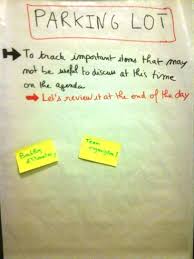 PARKING LOT
→ To track important items that may
not be useful to discuss at this time
on the agenda
→ Let's review it at the end of the day
Team